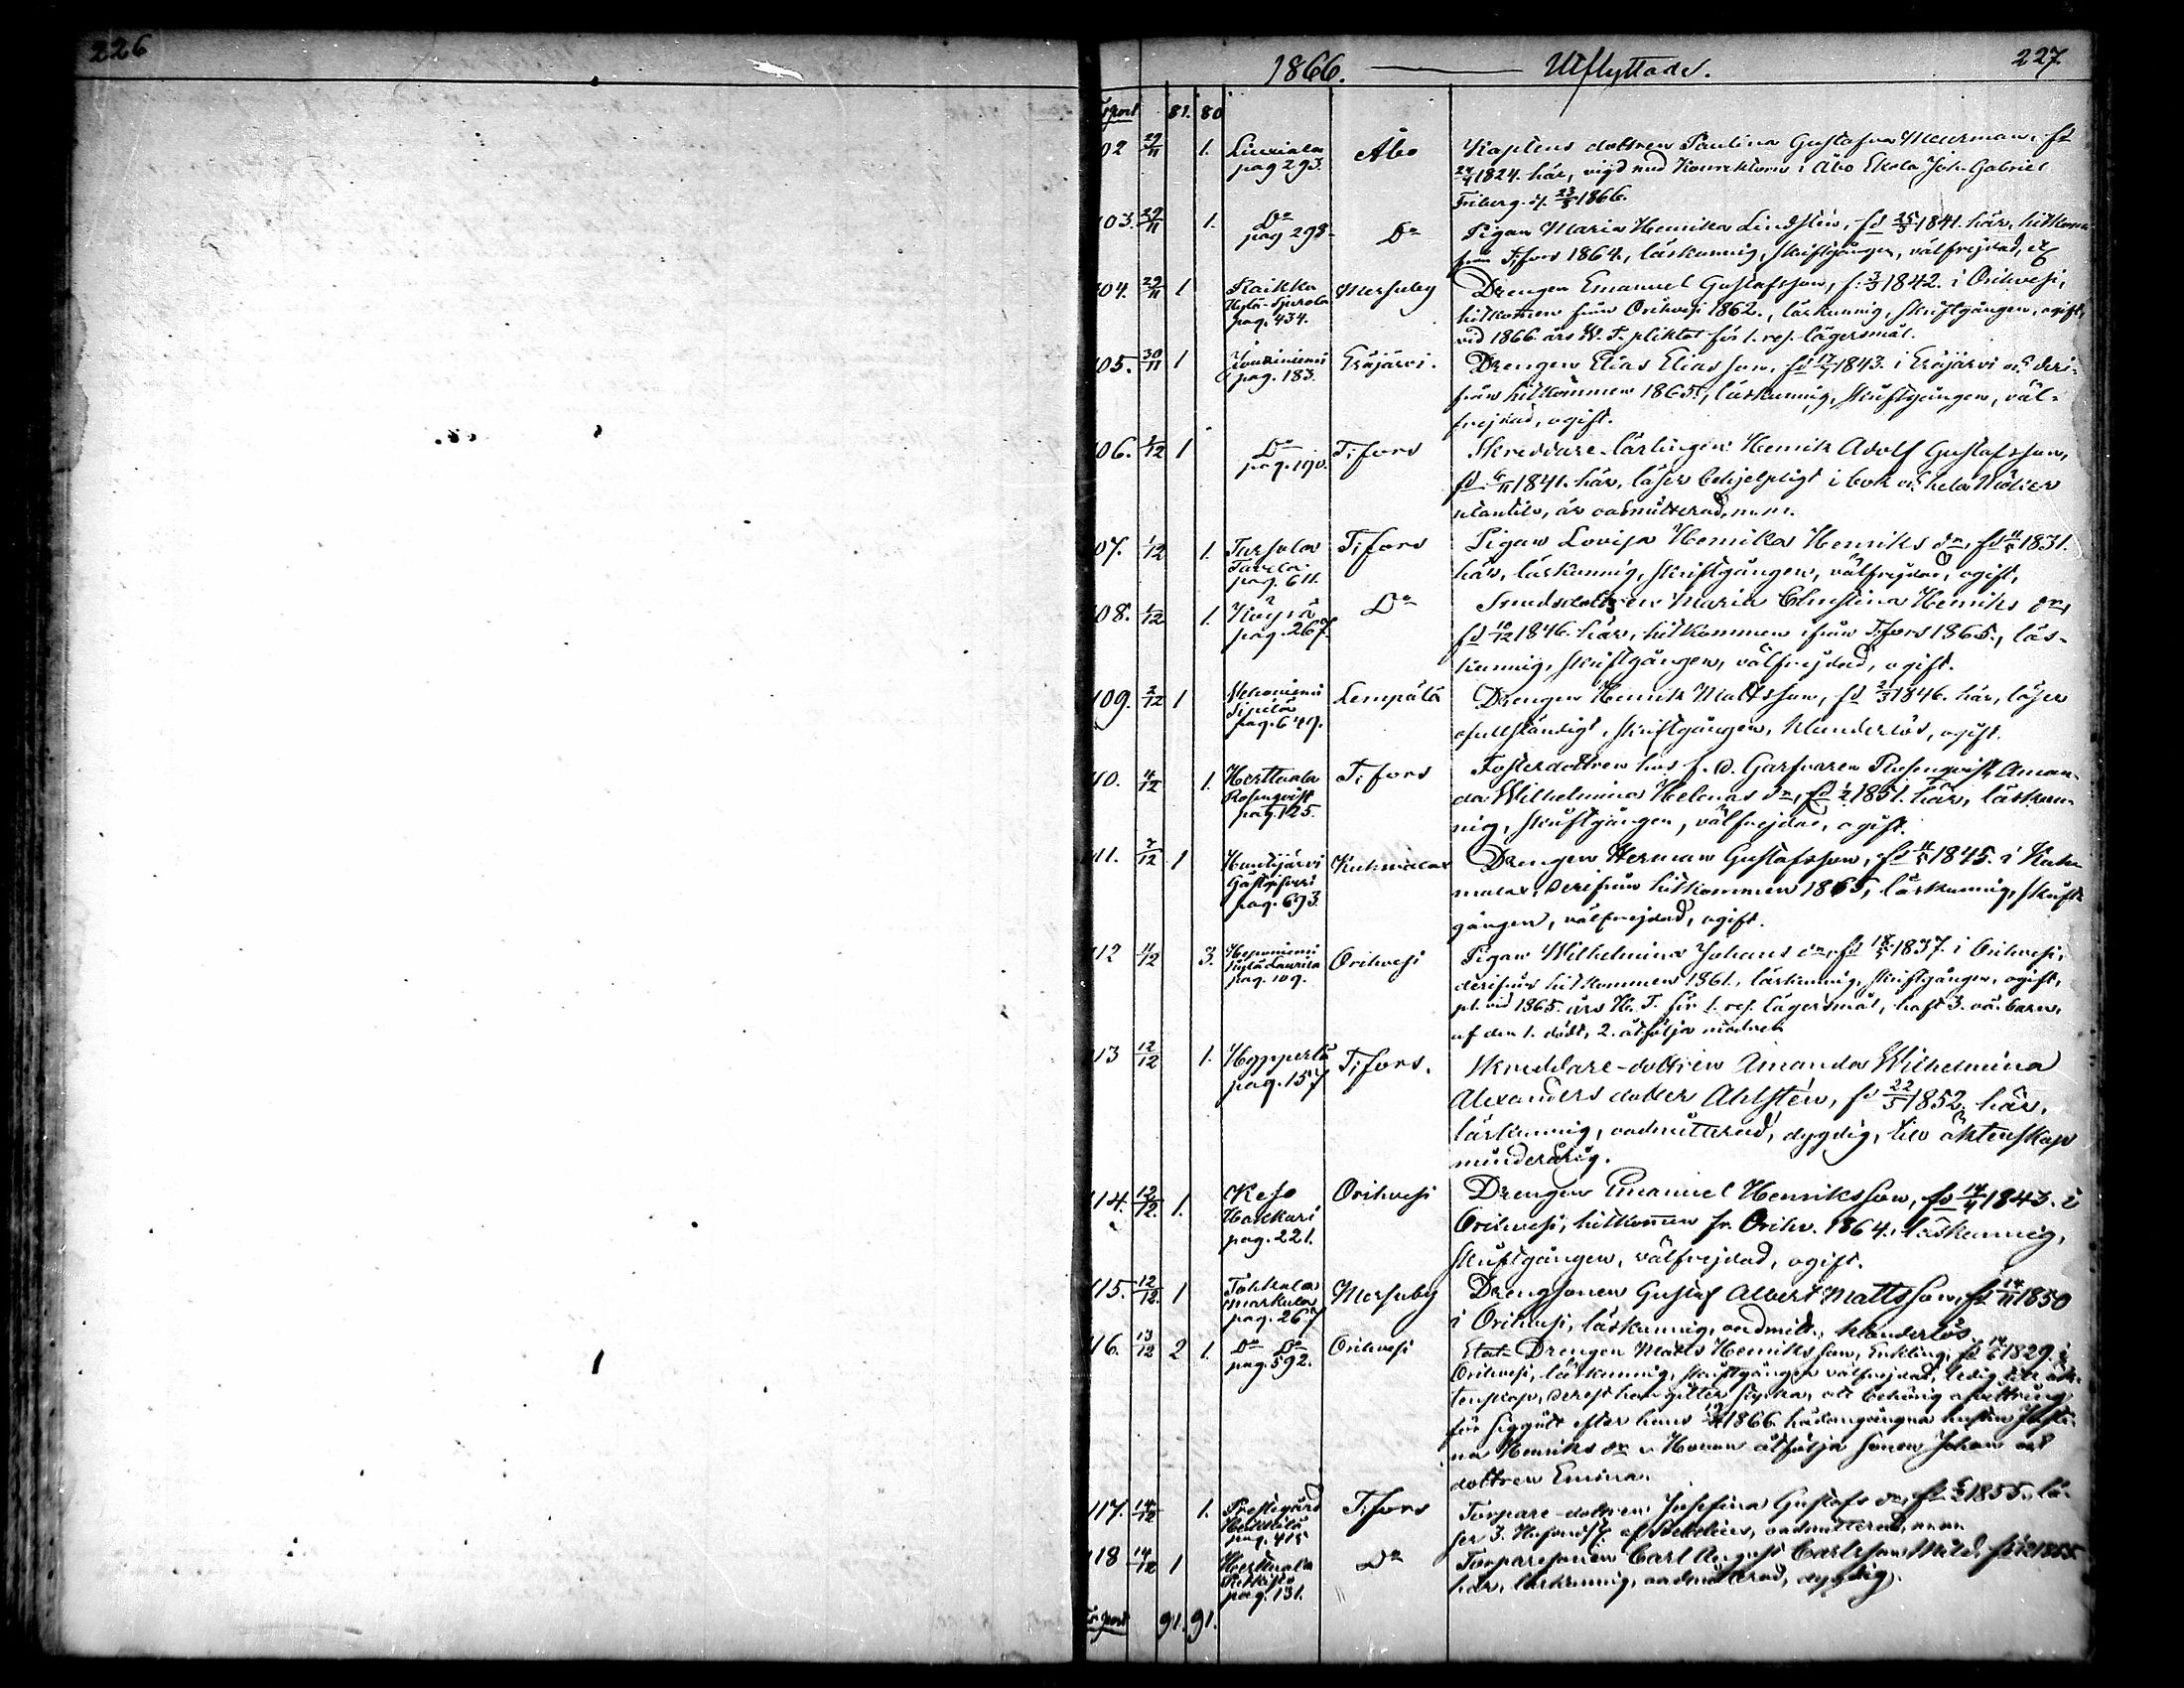 226
1866. Utflyttade. 227
Trsport 81. 80
102 29/11 1. Liuxiala pag 293. Åbo Kaptens dottren Paulina Gustafva Meurman, fd
1824. här, vigd med Konrektorn i Åbo Skola Joh. Gabriel
Friberg d. 23/8 1866.
103. 29/11 1. Do pag 298. Do Pigan Maria Henrika Lindsten, fd 25/3 1841. här, hitkommen
från T:fors 1864., läskunnig, skriftgången, välfrejdad,
104. 29/11 1 Raikku pag. 434. Messuby Drengen Emanuel Gustafsson, f. 3/3 1842. i Orihvesi,
hitkommen från Orihvesi 1862., läskunnig, skriftgången, ogift,
vid 1866 års W. T. pliktat för 1. res. lägersmål.
105. 30/11 1 pag. 183. Eräjärvi. Drengen Elias Eliasson, fd 17/7 1843. i Eräjärvi och deri-
från hitkommen 1865., läskunnig, skriftgången, väl-
frejdad, ogift.
106. 1/12 1 Do pag. 190. T:fors Skreddare-lärlingen Henrik Adolf Gustafsson,
fd 6/11 1841. här, läser behjelpligt i bok
utantill, är oadmitterad, m.m.
107. 1/12 1. Tursola Tavela pag. 611. T:fors Pigan Lovisa Henrika Henriks dr, fd 11/5 1831.
här, läskunnig, skriftgången, välfrejdad, ogift,
108. 1/12 1. Köyrä pag. 267. Do Smedsdottren Maria Christina Henriks dr,
fd 10/12 1846. här, hitkommen ifrån T:fors 1865., läs-
kunnig, skriftgången, välfrejdad, ogift.
109. 2/12 1 Vehoniemi Sipilä pag. 649. Lempälä Drengen Henrik Mattsson, fd 2/3 1846. här, läser
ofullständigt, skriftgången, klanderlös, ogift.
110. 4/12 1. Herttuala Rosenqvist pag. 125. T:fors Fosterdottren hos f.d. Garfvaren Rosenqvist, Aman-
da Wilhelmina Helenas dr, fd 1851. här, läskun-
nig, skriftgången, välfrejdad, ogift.
111. 7/12 1 Huutijärvi Gästgifveri pag. 693. Kuhmalax Drengen Herman Gustafsson, fd 11/5 1845. i Kuh-
malax, derifrån hitkommen 1865, läskunnig, skrift-
gången, välfrejdad, ogift.
112 11/12 3. Heponiemi pag. 109. Orihvesi Pigan Wilhelmina Johans dr, fd 18/5 1837. i Orihvesi,
derifrån hitkommen 1861., läskunnig, skriftgången, ogift,
pl. vid 1865. års W. T. för 1. res. lägersmål, haft 3. oä. barn,
af dem 1. dödt, 2. åtfölja modren
113 12/12 1. Hyppärlä pag. 157 T:fors. Skreddare-dottren Amanda Wilhelmina
Alexanders dotter Ahlstén, fd 22/5 1852. här,
läskunnig, oadmitterad, dygdig, till äktenskap
minderårig.
114. 12/12. 1. Keso Hakkari pag. 221. Orihvesi Drengen Emanuel Henriksson, fd 14/4 1843. i
Orihvesi, hitkommen fr. Orihv. 1864., läskunnig,
skriftgången, välfrejdad, ogift.
115. 12/12. 1 Tohkala Markula pag. 267 Messuby Drengsonen Gustaf Albert Mattsson, fd 14/11 1850
i Orihvesi, läskunnig, oadmitt., klanderlös
116. 13/12 2 1. Do Do pag. 592. Orihvesi Drengen Matts Henriksson, Enkling, fd 14/6 1829. i
Orihvesi, läskunnig, skriftgången välfrejdad, ledig till äk-
tenskap, derest han gitter styrka, att behörig afvittring
för siggått efter hans 1866. hädangångna hustru Justi-
na Henriks dr. Honom åtfölja sonen Johan och
dottren Emina.
117. 14/12 1. Prestgård Heikkilä pag. 415 T:fors Torpare-dottren Josefina Gustafs dr, fd 1855., lä-
ser 3. Hufvudst. af Katekes, oadmitterad, m.m
118 14/12 1 Herttuala pag. 131. Do Torparesonen Carl August Carlsson Wild, 1855
här, läskunnig, oadmitterad, dygdig.
Trsport 91. 91.